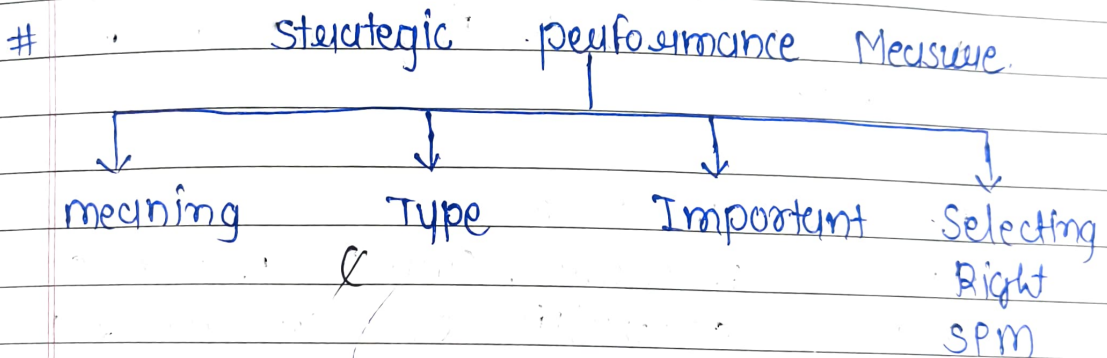 # Strategic performance Measure.
meaning Type Important Selecting
Right
SPM